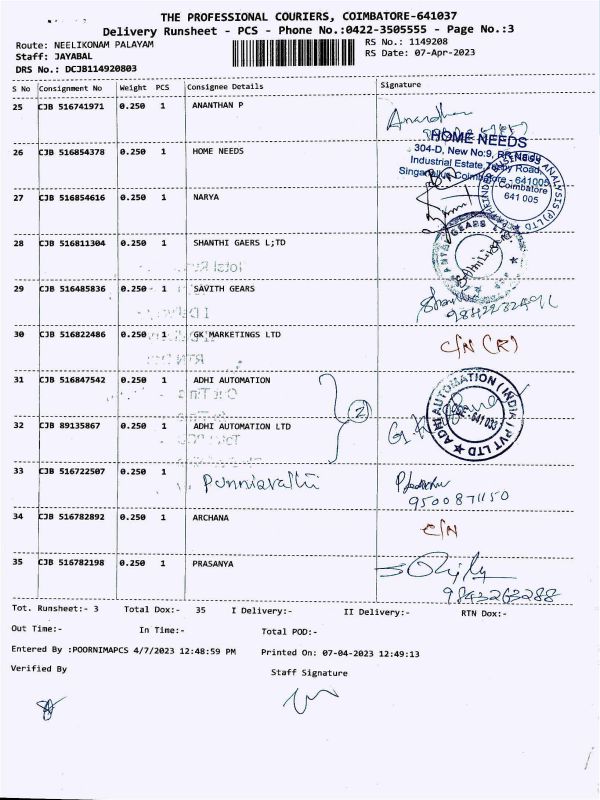 THE PROFESSIONAL COURIERS, COIMBATORE-641037
Delivery Runsheet - PCS - Phone No.:0422-3505555 - Page No.:3
Route: NEELIKONAM PALAYAM
RS No.: 1149208
Staff: JAYABAL
RS Date: 07-Apr-2023
DRS No.: DCJB114920803
S No Consignment No Weight PCS Consignee Details Signature
25 CJB 516741971 0.250 1 ANANTHAN P
26 CJB 516854378 0.250 1 HOME NEEDS
HOME NEEDS
304-D, New No:9,
Industrial Estate, Road,
Coimbatore - 641005
27 CJB 516854616 0.250 1 NARYA
Coimbatore
641 005
28 CJB 516811304 0.250 1 SHANTHI GAERS L;TD
29 CJB 516485836 0.250 1 SAVITH GEARS
30 CJB 516822486 0.250 1 GK MARKETINGS LTD C/N (R)
31 CJB 516847542 0.250 1 ADHI AUTOMATION
2
ADHI AUTOMATION (INDIA) PVT LTD
32 CJB 89135867 0.250 1 ADHI AUTOMATION LTD
33 CJB 516722507 0.250 1 Punniavathi
9500871150
34 CJB 516782892 0.250 1 ARCHANA C/N
35 CJB 516782198 0.250 1 PRASANYA
9843263288
Tot. Runsheet:- 3 Total Dox:- 35 I Delivery:- II Delivery:- RTN Dox:-
Out Time:- In Time:- Total POD:-
Entered By :POORNIMAPCS 4/7/2023 12:48:59 PM Printed On: 07-04-2023 12:49:13
Verified By Staff Signature